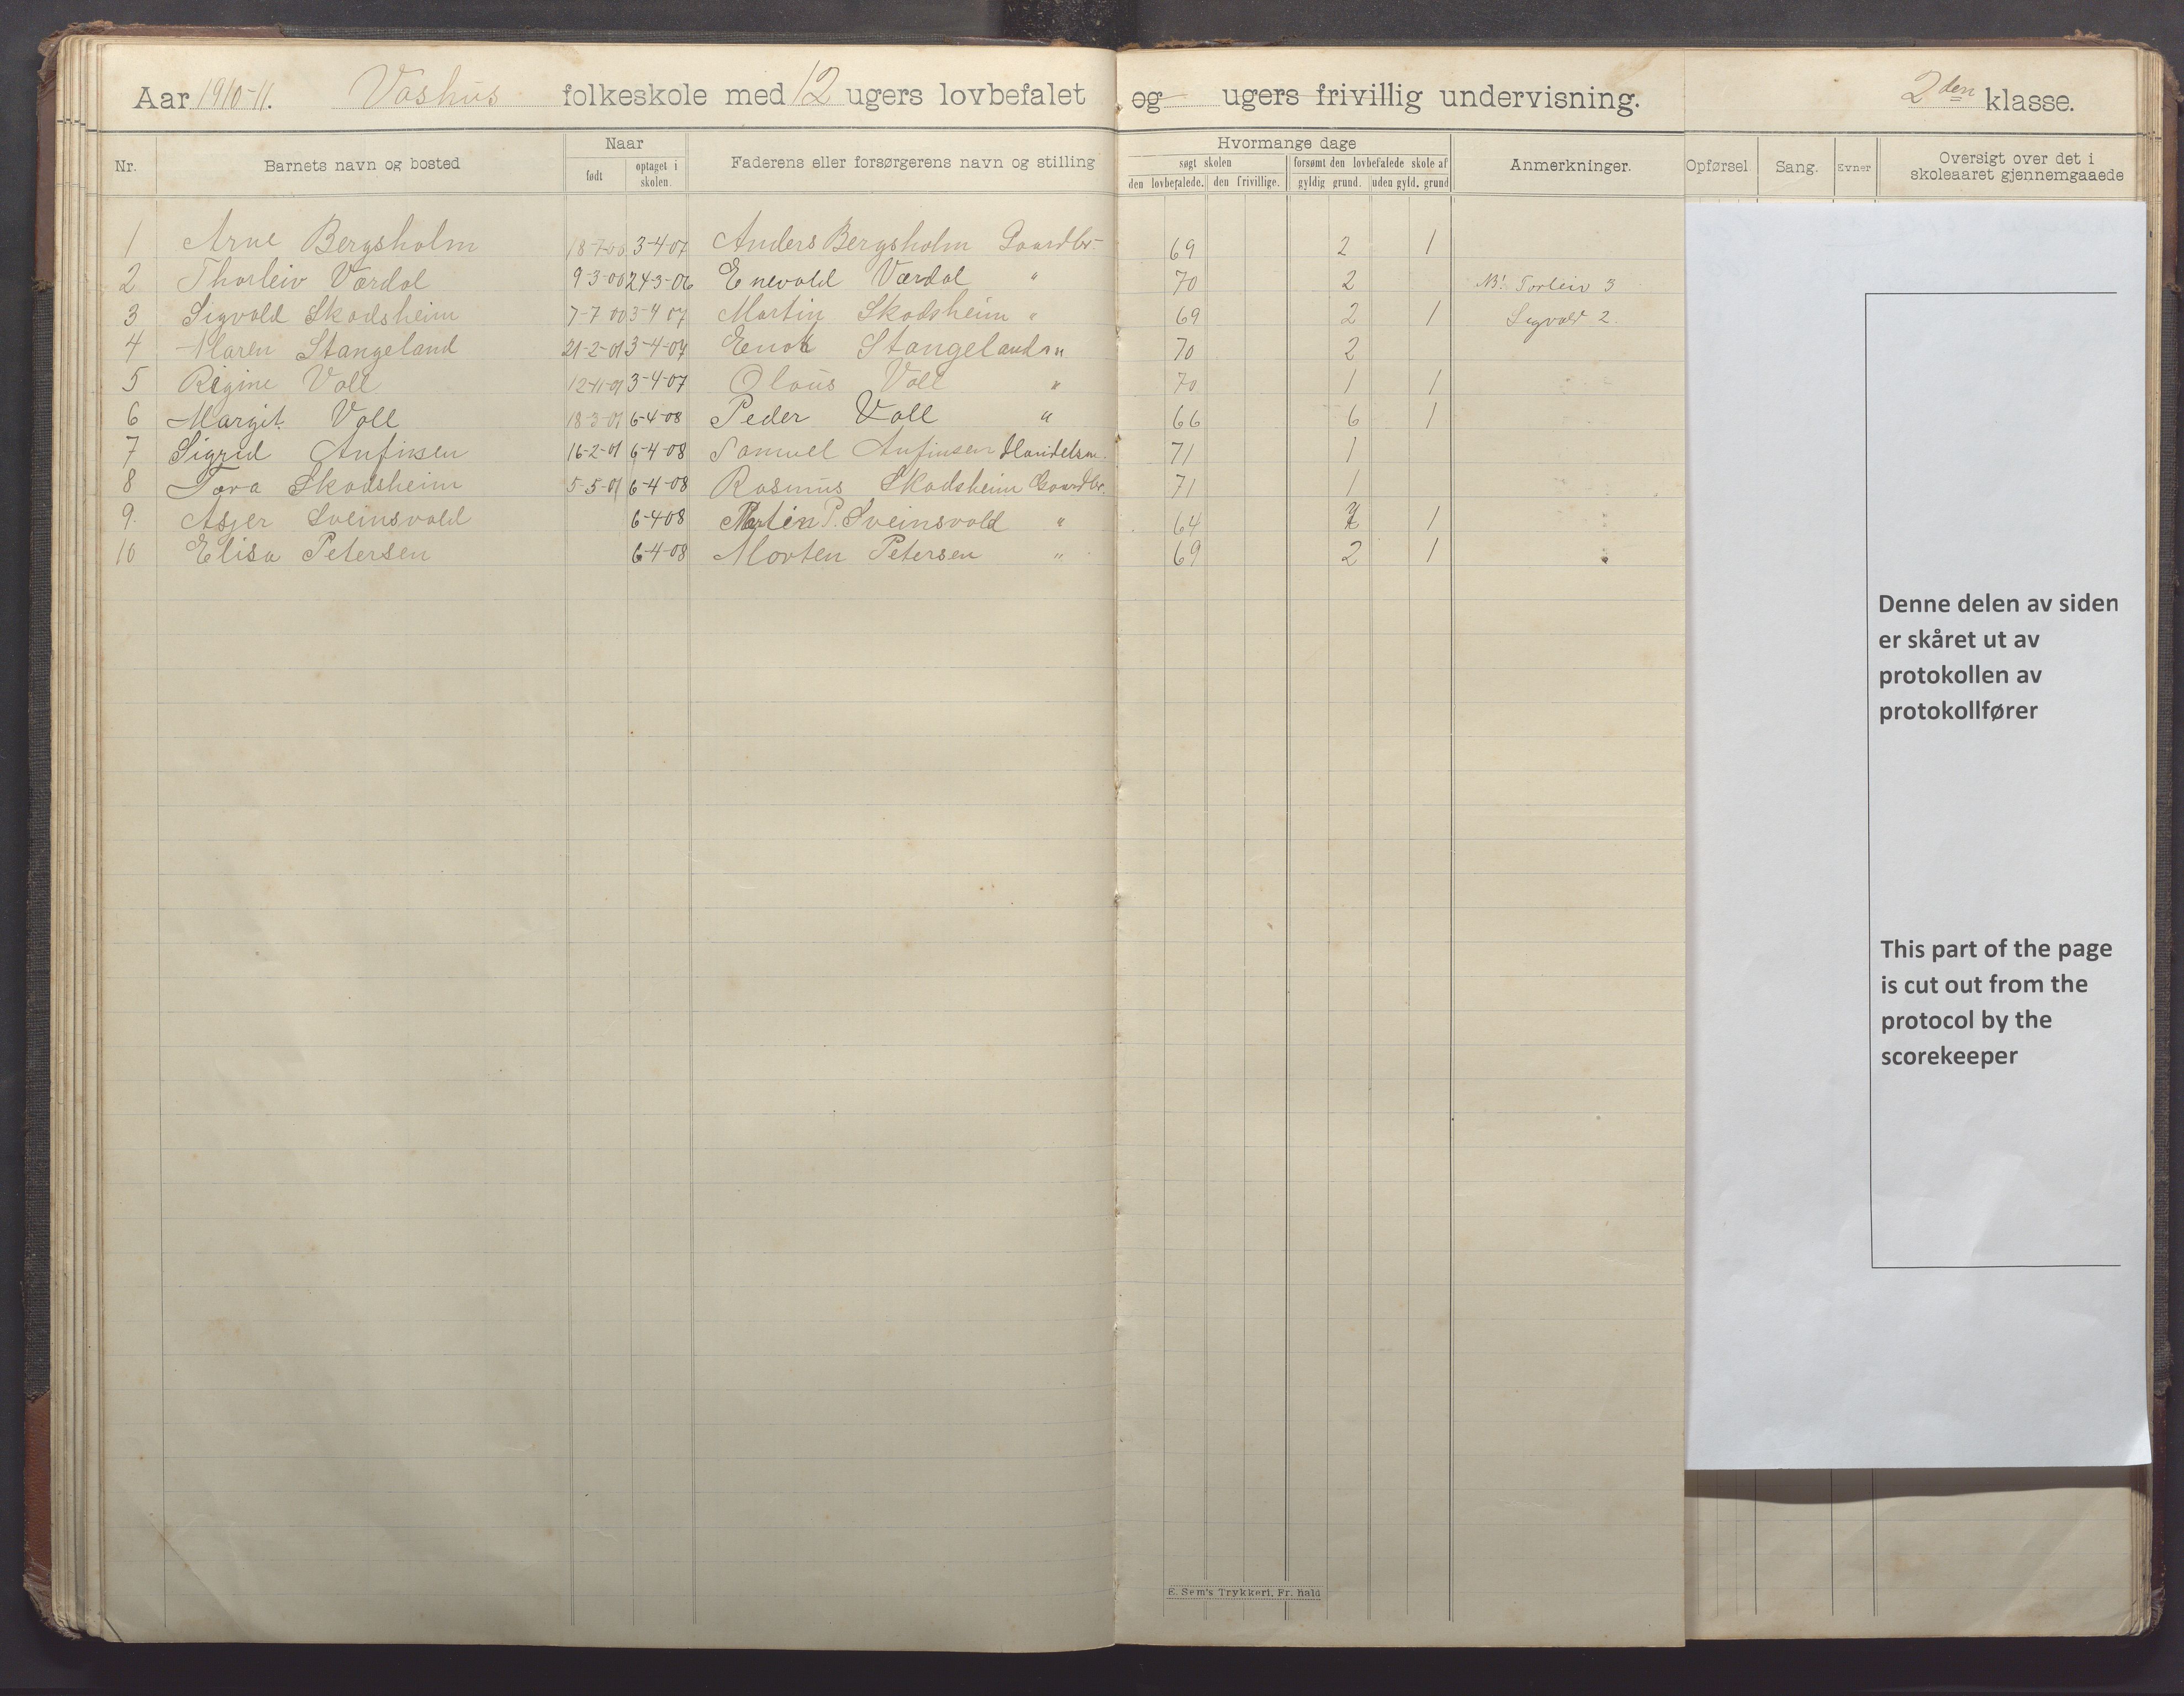 Aar 1910-11. Vashus folkeskole med 12 ugers lovbefalet og ugers frivillig undervisning. 2den klasse.
Nr. Barnets navn og bosted Naar født optaget i skolen. Faderens eller forsørgerens navn og stilling Hvormange dage søgt skolen den lovbefalede. den frivillige. forsømt den lovbefalede skole af gyldig grund. uden gyld. grund Anmerkninger. Opførsel Sang. Evner Oversigt over det i skoleaaret gjennemgaaede
1 Arne Bergsholm 18-7-00 3-4-07 Anders Bergsholm Gaardbr- 69 2 1
2 Thorleiv Værdal 9-3-00 24-3-06 Enevald Værdal " 70 2 NB! Torleiv 3
3 Sigvald Skadsheim 7-7 00 3-4 07 Martin Skadsheim " 69 2 1 Sigvald 2.
4 Maren Stangeland 21-2-01 3-4-07 Enok Stangeland " 70 2
5 Regine Voll 3-4-07 Olaus Voll " 70 1 1
6 Margit Voll 18-3-01 6-4-08 Peder Voll " 66 6 1
7 Sigrid Anfinsen 16-2-01 6-4-08 Samuel Anfinsen Handelsm. 71 1
8 Tora Skadsheim 5-5-01 6-4-08 Rasmus Skadsheim Gaardbr. 71 1
9. Asjer Sveinsvold 6-4-08 P. Sveinsvold " 64 7 1
10 Elisa Petersen 6-4-08 Morten Petersen " 69 2 1
Denne delen av siden
er skåret ut av
protokollen av
protokollfører
This part of the page
is cut out from the
protocol by the
scorekeeper
E. Sem's Trykkeri, Fr. hald